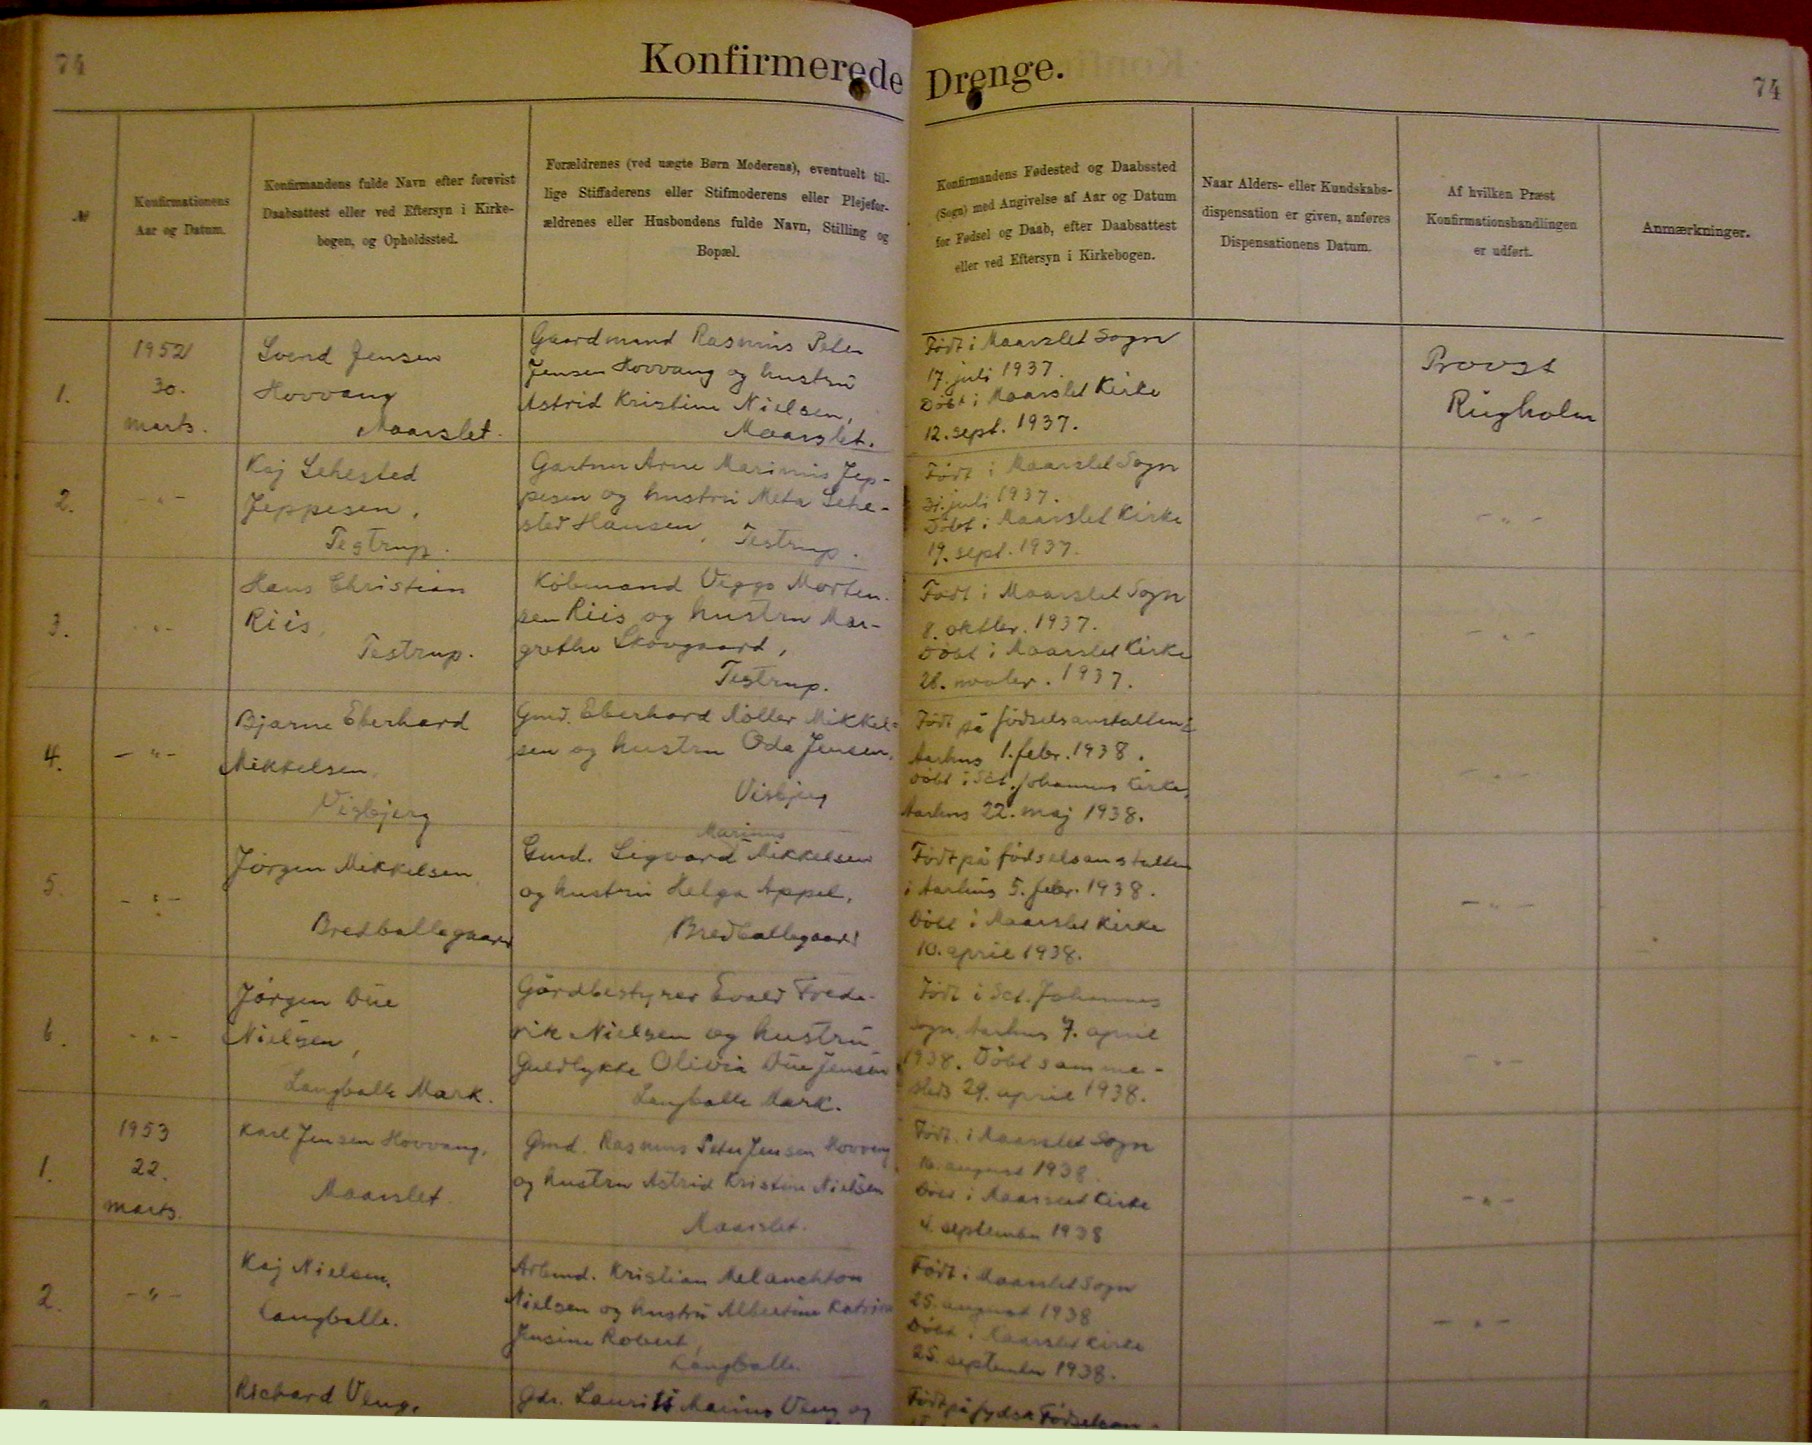 74
Konfirmerede Drenge.
74
№
Konfirmationens
Aar og Datum.
Konfirmandens fulde Navn efter forevist
Daabsattest eller ved Eftersyn i Kirke-
bogen, og Opholdssted.
Forældrenes (ved uægte Børn Moderens), eventuelt til-
lige Stiffaderens eller Stifmoderens eller Plejefor-
ældrenes eller Husbondens fulde Navn, Stilling og
Bopæl.
Konfirmandens Fødested og Daabssted
(Sogn) med Angivelse af Aar og Datum
for Fødsel og Daab, efter Daabsattest
eller ved Eftersyn i Kirkebogen.
Naar Alders- eller Kundskabs-
dispensation er given, anføres
Dispensationens Datum.
Af hvilken Præst
Konfirmationshandlingen
er udført.
Anmærkninger.
1.
1952
30.
marts.
Svend Jensen
Hovvang
Maarslet.
Gaardmand Rasmus Peter
Jensen Hovvang og hustru
Astrid Kristine Nielsen,
Maarslet.
Født i Maarslet Sogn
17. juli 1937.
Døbt i Maarslet Kirke
12. sept. 1937.
Provst
Rugholm
2.
- " -
Kaj Sehested
Jeppesen,
Testrup.
Gartner Arne Marinus Jep-
pesen og hustru Meta Sehe-
sted Hansen, Testrup.
Født i Maarslet Sogn
31. juli 1937.
Døbt i Maarslet Kirke
19. sept. 1937.
- " -
3.
- " -
Hans Christian
Riis,
Testrup.
Købmand Viggo Morten-
sen Riis og hustru Mar-
grethe Skovgaard,
Testrup.
Født i Maarslet Sogn
8. oktbr. 1937.
Døbt i Maarslet Kirke
28. novbr. 1937.
- " -
4.
- " -
Bjarne Eberhard
Mikkelsen,
Visbjerg
Gmd. Eberhard Møller Mikkel-
sen og hustru Oda Jensen,
Visbjerg
Født på fødselsanstalten i
Aarhus 1. febr. 1938.
Døbt i Sct. Johannes Kirke,
Aarhus 22. maj 1938.
- " -
5.
- " -
Jørgen Mikkelsen,
Bredballegaard
Marinus
Gmd. Sigvard Mikkelsen
og hustru Helga Appel,
Bredballegaard
Født på fødselsanstalten
i Aarhus 5. febr. 1938.
Døbt i Maarslet Kirke
10. april 1938.
- " -
6.
- " -
Jørgen Due
Nielsen,
Langballe Mark.
Gårdbestyrer Evald Frede-
rik Nielsen og hustru
Guldlykke Olivia Due Jensen
Langballe Mark.
Født i Sct. Johannes
Sogn, Aarhus 7. april
1938. Døbt samme-
steds 29. april 1938.
- " -
1.
1953
22.
marts.
Karl Jensen Hovvang,
Maarslet.
Gmd. Rasmus Peter Jensen Hovvang
og hustru Astrid Kristine Nielsen
Maarslet.
Født i Maarslet Sogn
16. august 1938.
Døbt i Maarslet Kirke
4. september 1938
- " -
2.
- " -
Kaj Nielsen,
Langballe.
Arbmd. Kristian Melanchton
Nielsen og hustru Albertine Katrine
Jensine Robert,
Langballe.
Født i Maarslet Sogn
25. august 1938
Døbt i Maarslet Kirke
25. september 1938.
- " -
Richard Veng,
Gdr. Laurits Marinus Veng og